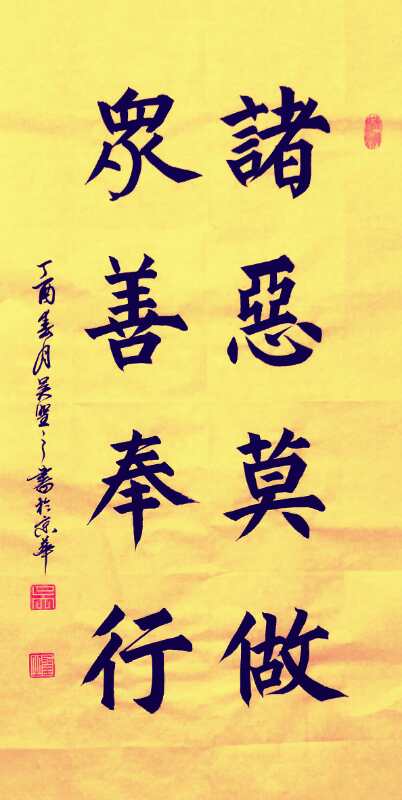 諸惡莫做
眾善奉行
丁酉春月吴坚之書於京華